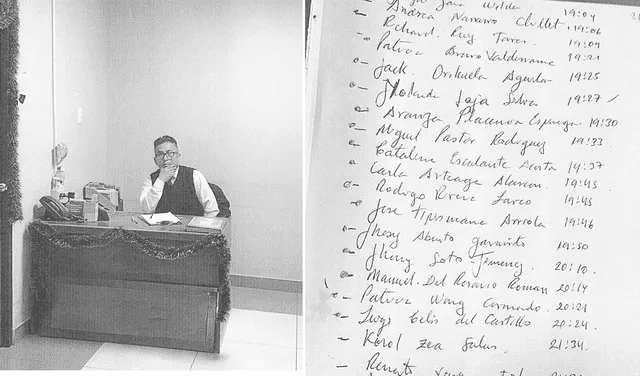 José Wilder 19:04
- Andrea Navarro Chillet. 19:06
- Richard. Ruy Torres. 19:09
- Patricia Bravo Valderrama 19:21
- Jack. Orihuela Aguilar 19:25
- Yolanda Loja Silva 19:27 /
- Aranza Placencia Espinoza 19:30
- Miguel Pastor Rodriguez 19:33
- Catalina Escalante Acosta 19:37
- Carla Arteaga Alarcon. 19:43
- Rodrigo Rivera Larco 19:45
- Jose Tipismana Arriola 19:46
- Jhosy Abanto 19:50
- Jheny Soto Jimenez. 20:10
- Manuel. Del Rosario Roman 20:14
- Patricia Wong Coronado. 20:21
- Celis del Castillo 20:24.
- Karol Zea Salas. 21:34.
- Renato